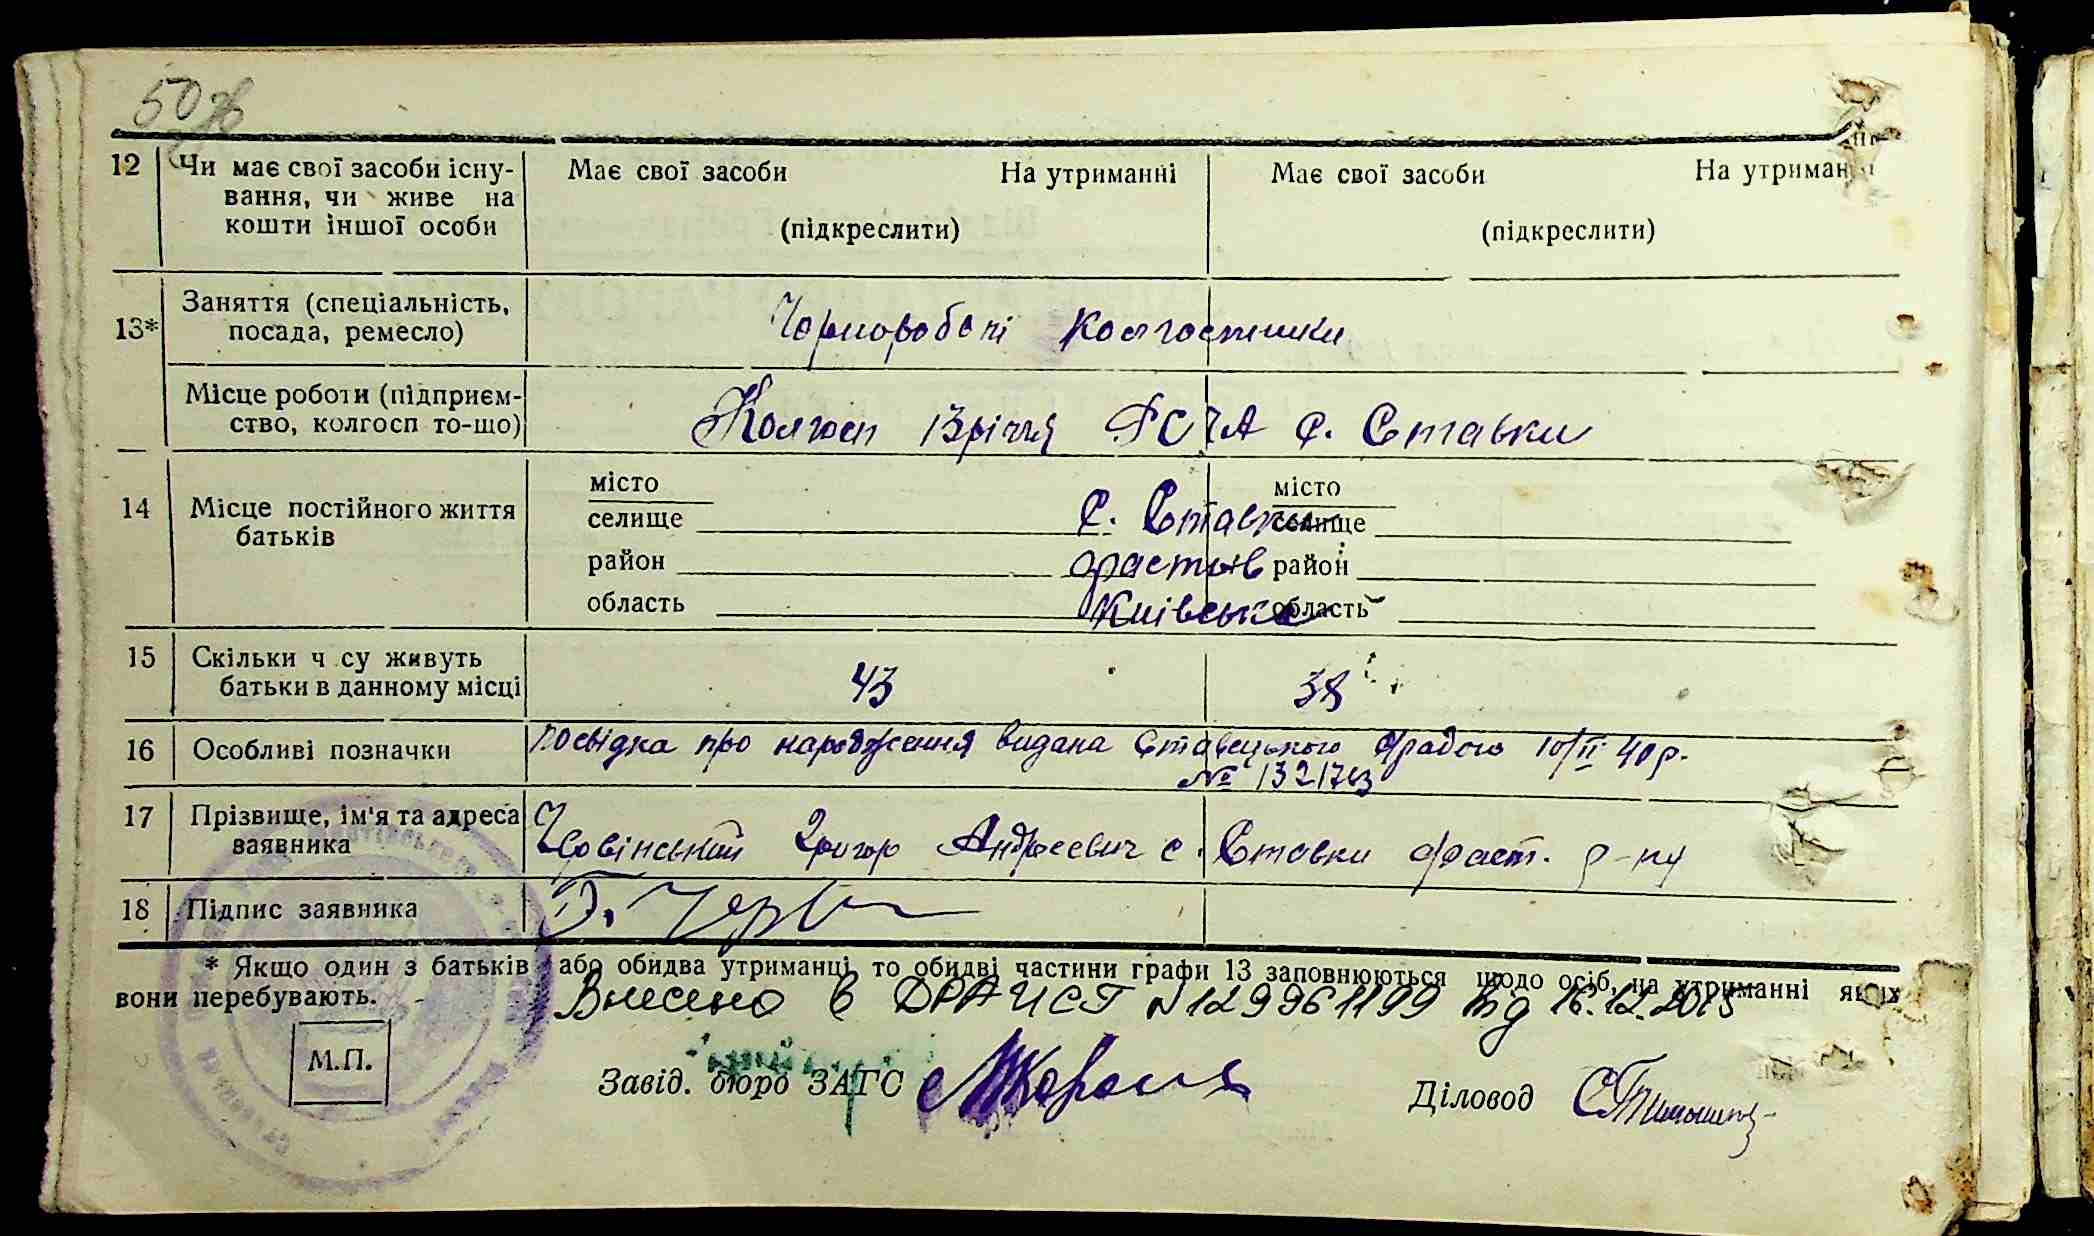 50
12 Чи має свої засоби існу- Має свої засоби На утриманні Має свої засоби На утриманні
вання, чи живе на
кошти іншої особи (підкреслити) (підкреслити)
13* Заняття (спеціальність,
посада, ремесло) Чорноробочі колгоспники
Місце роботи (підприєм-
ство, колгосп то-що) Колгосп 13річчя РСЧА с. Ставки
14 Місце постійного життя
батьків
місто місто
селище с. Ставки селище
район Фастів район
область Київська область
15 Скільки ч су живуть
батьки в данному місці 43 38
16 Особливі позначки Посвідка про народження видана Ставецькою с/радою 10/II 40р.
№ 132173
17 Прізвище, ім'я та адреса
заявника Григор Андреевич с. Ставки Фаст. р-ну
18 Підпис заявника
* Якщо один з батьків або обидва утриманці то обидві частини графи 13 заповнюються щодо осіб, на утриманні яких
вони перебувають.
Внесено в ДРАЦСГ N129961199 від 16.12.2015
М.П.
Завід. бюро ЗАГС Діловод